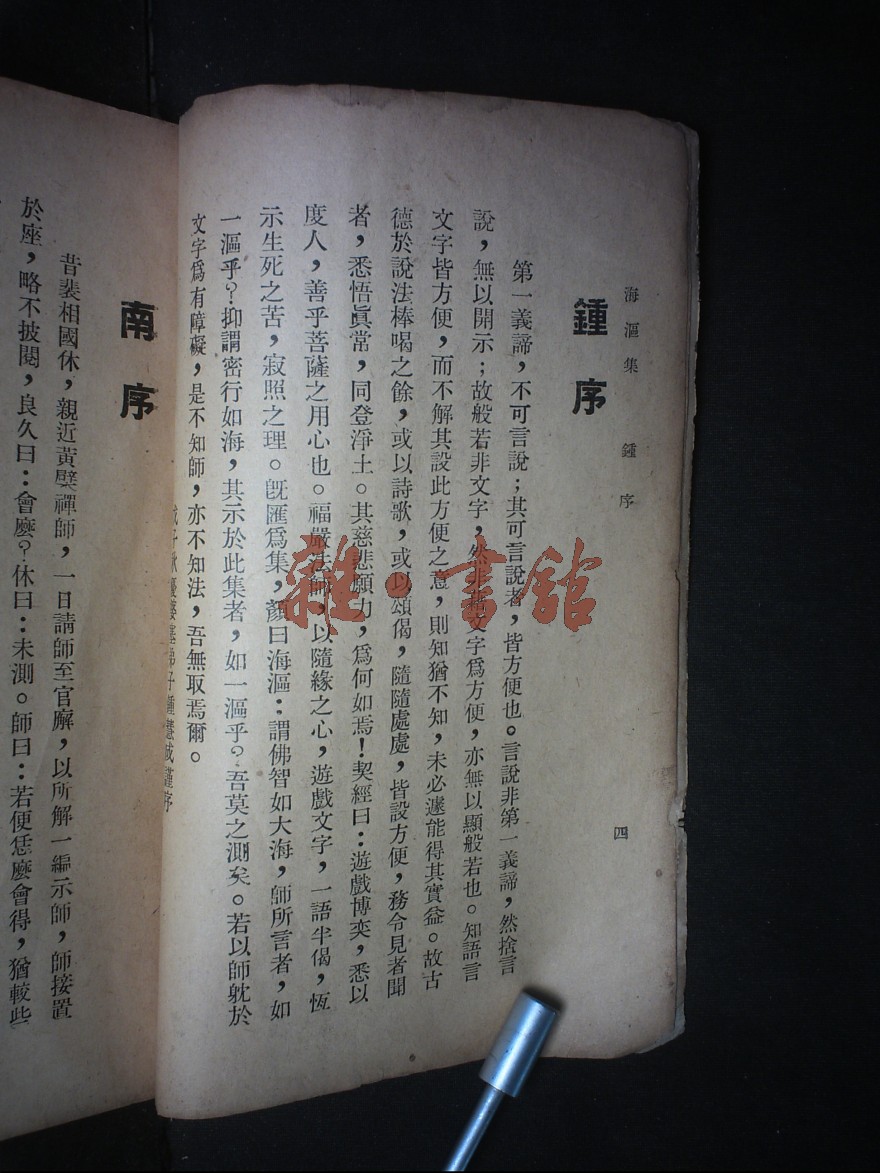 海漚集　鍾序
四
鍾序
第一義諦，不可言說；其可言說者，皆方便也。言說非第一義諦，然捨言
說，無以開示；故般若非文字，然非藉文字爲方便，亦無以顯般若也。知語言
文字皆方便，而不解其設此方便之意，則知猶不知，未必遽能得其實益。故古
德於說法棒喝之餘，或以詩歌，或以頌偈，隨隨處處，皆設方便，務令見者聞
者，悉悟眞常，同登淨土。其慈悲願力，爲何如焉！契經曰：遊戲博奕，悉以
度人，善乎菩薩之用心也。福嚴法師，以隨緣之心，遊戲文字，一語半偈，恆
示生死之苦，寂照之理。旣匯爲集，顏曰海漚：謂佛智如大海，師所言者，如
一漚乎？抑謂密行如海，其示於此集者，如一漚乎？吾莫之測矣。若以師躭於
文字爲有障礙，是不知師，亦不知法，吾無取焉爾。
優婆塞弟子鍾慧成謹序
南序
昔裴相國休，親近黃檗禪師，一日請師至官廨，以所解一編示師，師接置
於座，略不披閱，良久曰：會麼？休曰：未測。師曰：若便恁麼會得，猶較些
雜·書館